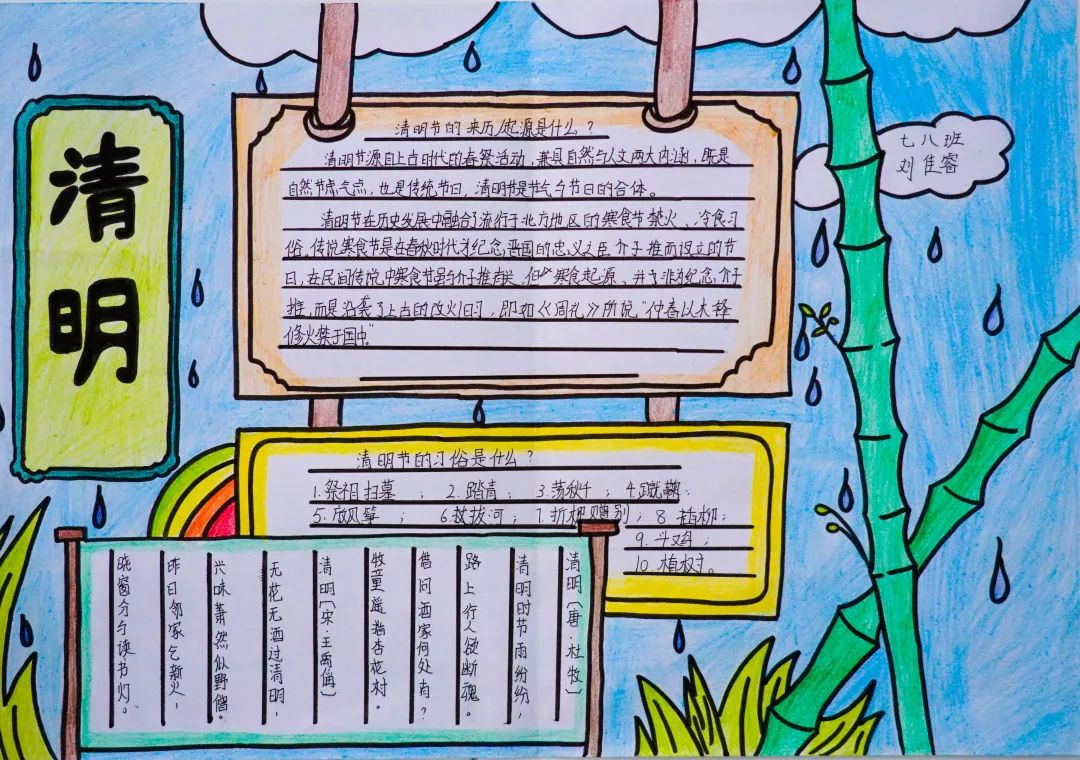 清明
七八班
刘佳睿
清明节的来历/起源是什么？
清明节源自上古时代的春祭活动，兼具自然与人文两大内涵，既是
自然节气点，也是传统节日，清明节是节气与节日的合体。
清明节在历史发展中融合了流行于北方地区的寒食节禁火、冷食习
俗。传说寒食节是在春秋时代为纪念晋国的忠义之臣介子推而设立的节
日，在民间传说中寒食节虽与介子推有关，但寒食起源、并非为纪念介子
推，而是沿袭了上古的改火旧习，即如《周礼》所说“仲春以木铎
修火禁于国中”
清明节的习俗是什么？
1.祭祖扫墓； 2.踏青； 3.荡秋千； 4.蹴鞠；
5.放风筝； 6.拔河； 7.折柳赠别； 8.插柳；
9.斗鸡；
10.植树。
清明〔唐·杜牧〕
清明时节雨纷纷，
路上行人欲断魂。
借问酒家何处有？
牧童遥指杏花村。
清明〔宋·王禹偁〕
无花无酒过清明，
兴味萧然似野僧。
昨日邻家乞新火，
晓窗分与读书灯。